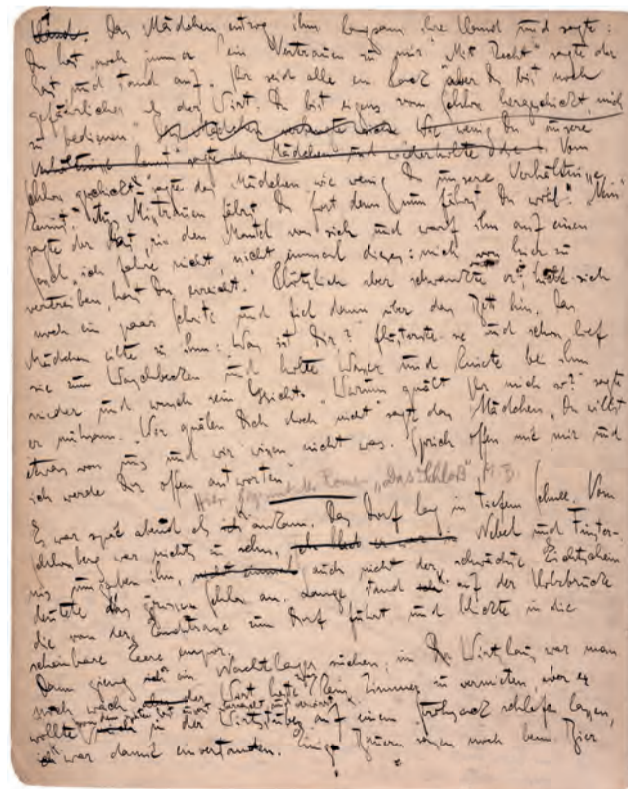 Hand. Das Mädchen entzog ihm langsam ihre Hand und sagte:
Du hast noch immer kein Vertrauen zu mir" "Mit Recht" sagte der
Gast und stand auf. "Ihr seid alle ein Pack" aber Du bist noch
gefährlicher als der Wirt. Du bist eigens vom Schloss hergeschickt, mich
zu bedienen" Wie wenig Du unsere
Verhältnisse kennst" sagte das Mädchen und wiederholte Vom
Schloss geschickt" sagte das Mädchen wie wenig Du unsere Verhältnisse
kennst. Aus Misstrauen fährst Du fort denn nun fährst Du wohl". "Nein"
sagte der Gast, riss den Mantel von sich und warf ihn auf einen
ich fahre nicht, nicht einmal dieses: mich von hier zu
vertreiben hast Du erreicht. Plötzlich aber schwankte er, hielt sich
noch ein paar Schritte und fiel dann über das Bett hin. Das
Mädchen eilte zu ihm: Was ist Dir? flüsterte sie und schon lief
sie zum Waschbecken und holte Wasser und kniete bei ihm
nieder und wusch sein Gesicht. "Warum quält Ihr mich so?" sagte
er mühsam. "Wir quälen Dich doch nicht" sagte das Mädchen, "Du willst
etwas von uns und wir wissen nicht was. Sprich offen mit mir und
ich werde Dir offen antworten"
Hier beginnt der Roman "Das Schloß", M.B.
Es war spät abend als ich ankam. Das Dorf lag in tiefem Schnee. Vom
Schlossberg war nichts zu sehn, Nebel und Finster-
nis umgaben ihn, nicht einmal auch nicht der schwächste Lichtschein
deutete das grosse Schloss an. Lange stand ich auf der Holzbrücke
die von der Landstrasse zum Dorf führt und blickte in die
scheinbare Leere empor.
Dann gieng ich ein Nachtlager suchen; in Wirtshaus war man
noch wach der Wirt hatte zwar kein Zimmer zu vermieten, aber er
von dem späten Gast überrascht und verwirrt
wollte mich in der Wirtsstube auf einem Strohsack schlafen lassen,
ich war damit einverstanden. Einige Bauern waren noch beim Bier